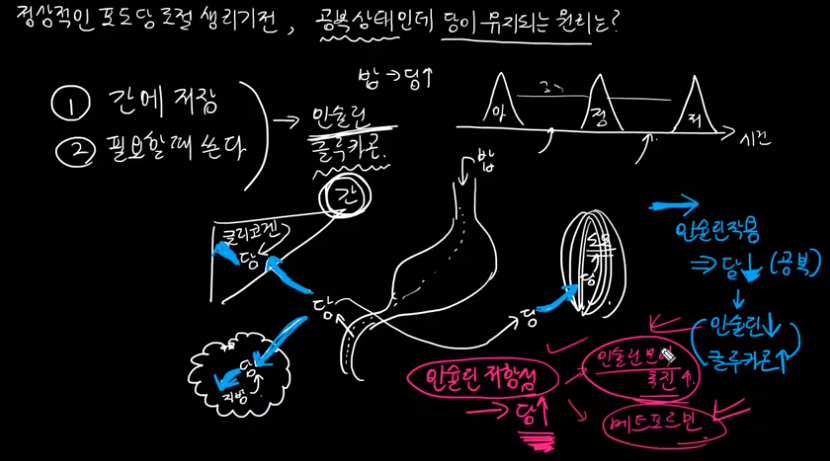 정상적인 포도당 조절 생리기전, 공복상태인데 당이 유지되는 원리는?
① 간에 저장
② 필요할때 쓴다
→ 인슐린
글루카곤.
밥 → 당↑
아
점
저
시간
간
글리코겐
당
밥
당
당
당
지방
당
인슐린작용
⇒ 당↓ (공복)
↓
인슐린↓
글루카곤↑
인슐린 저항성
→ 당↑
인슐린
촉진↑
메트포르민